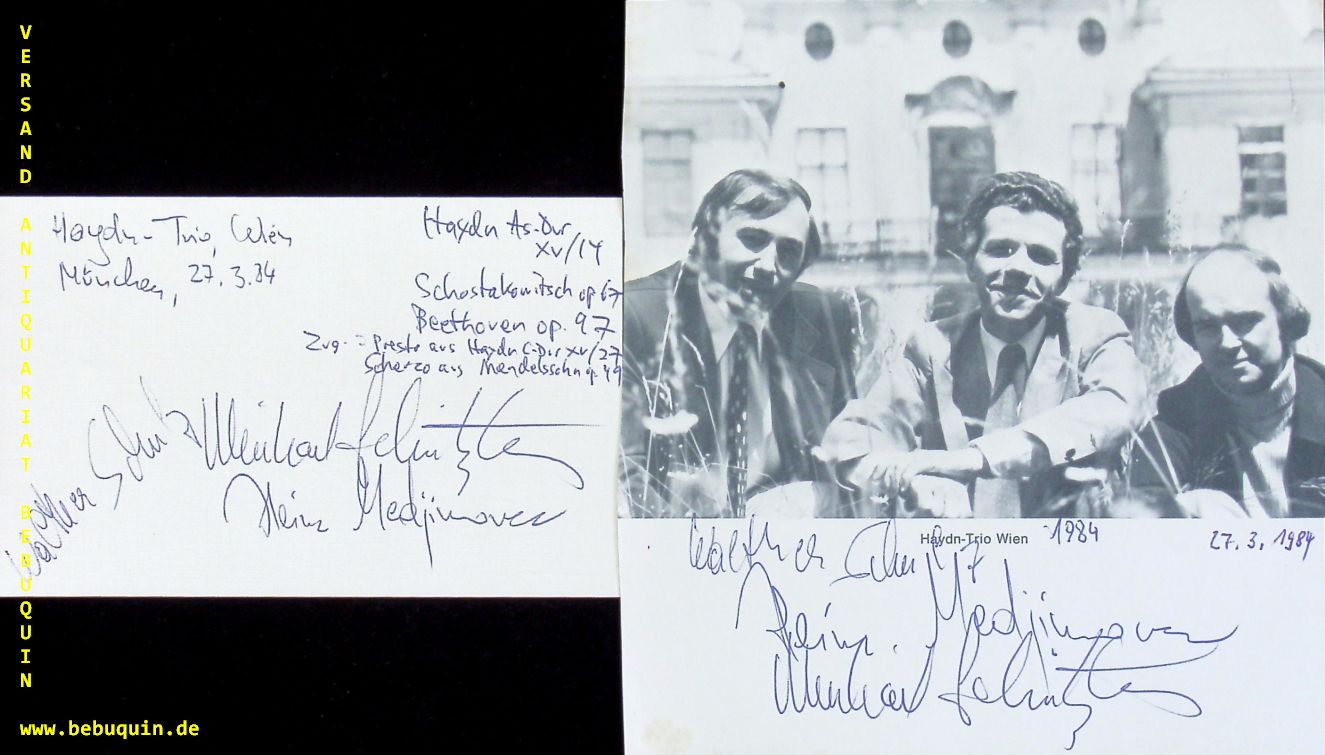 VERSAND ANTIQUARIAT BEBUQUIN
www.bebuquin.de
Haydn-Trio, Wien
München, 27.3.84
Haydn As-Dur
XV/14
Schostakowitsch op 67
Beethoven op. 97
Zug. = Presto aus Haydn C-Dur XV/27
Scherzo aus Mendelssohn op. 49
Walther Schulz
Meinhart Prinz
Heinz Medjimorec
Haydn-Trio Wien
1984
27.3.1984
Walther Schulz
Heinz Medjimorec